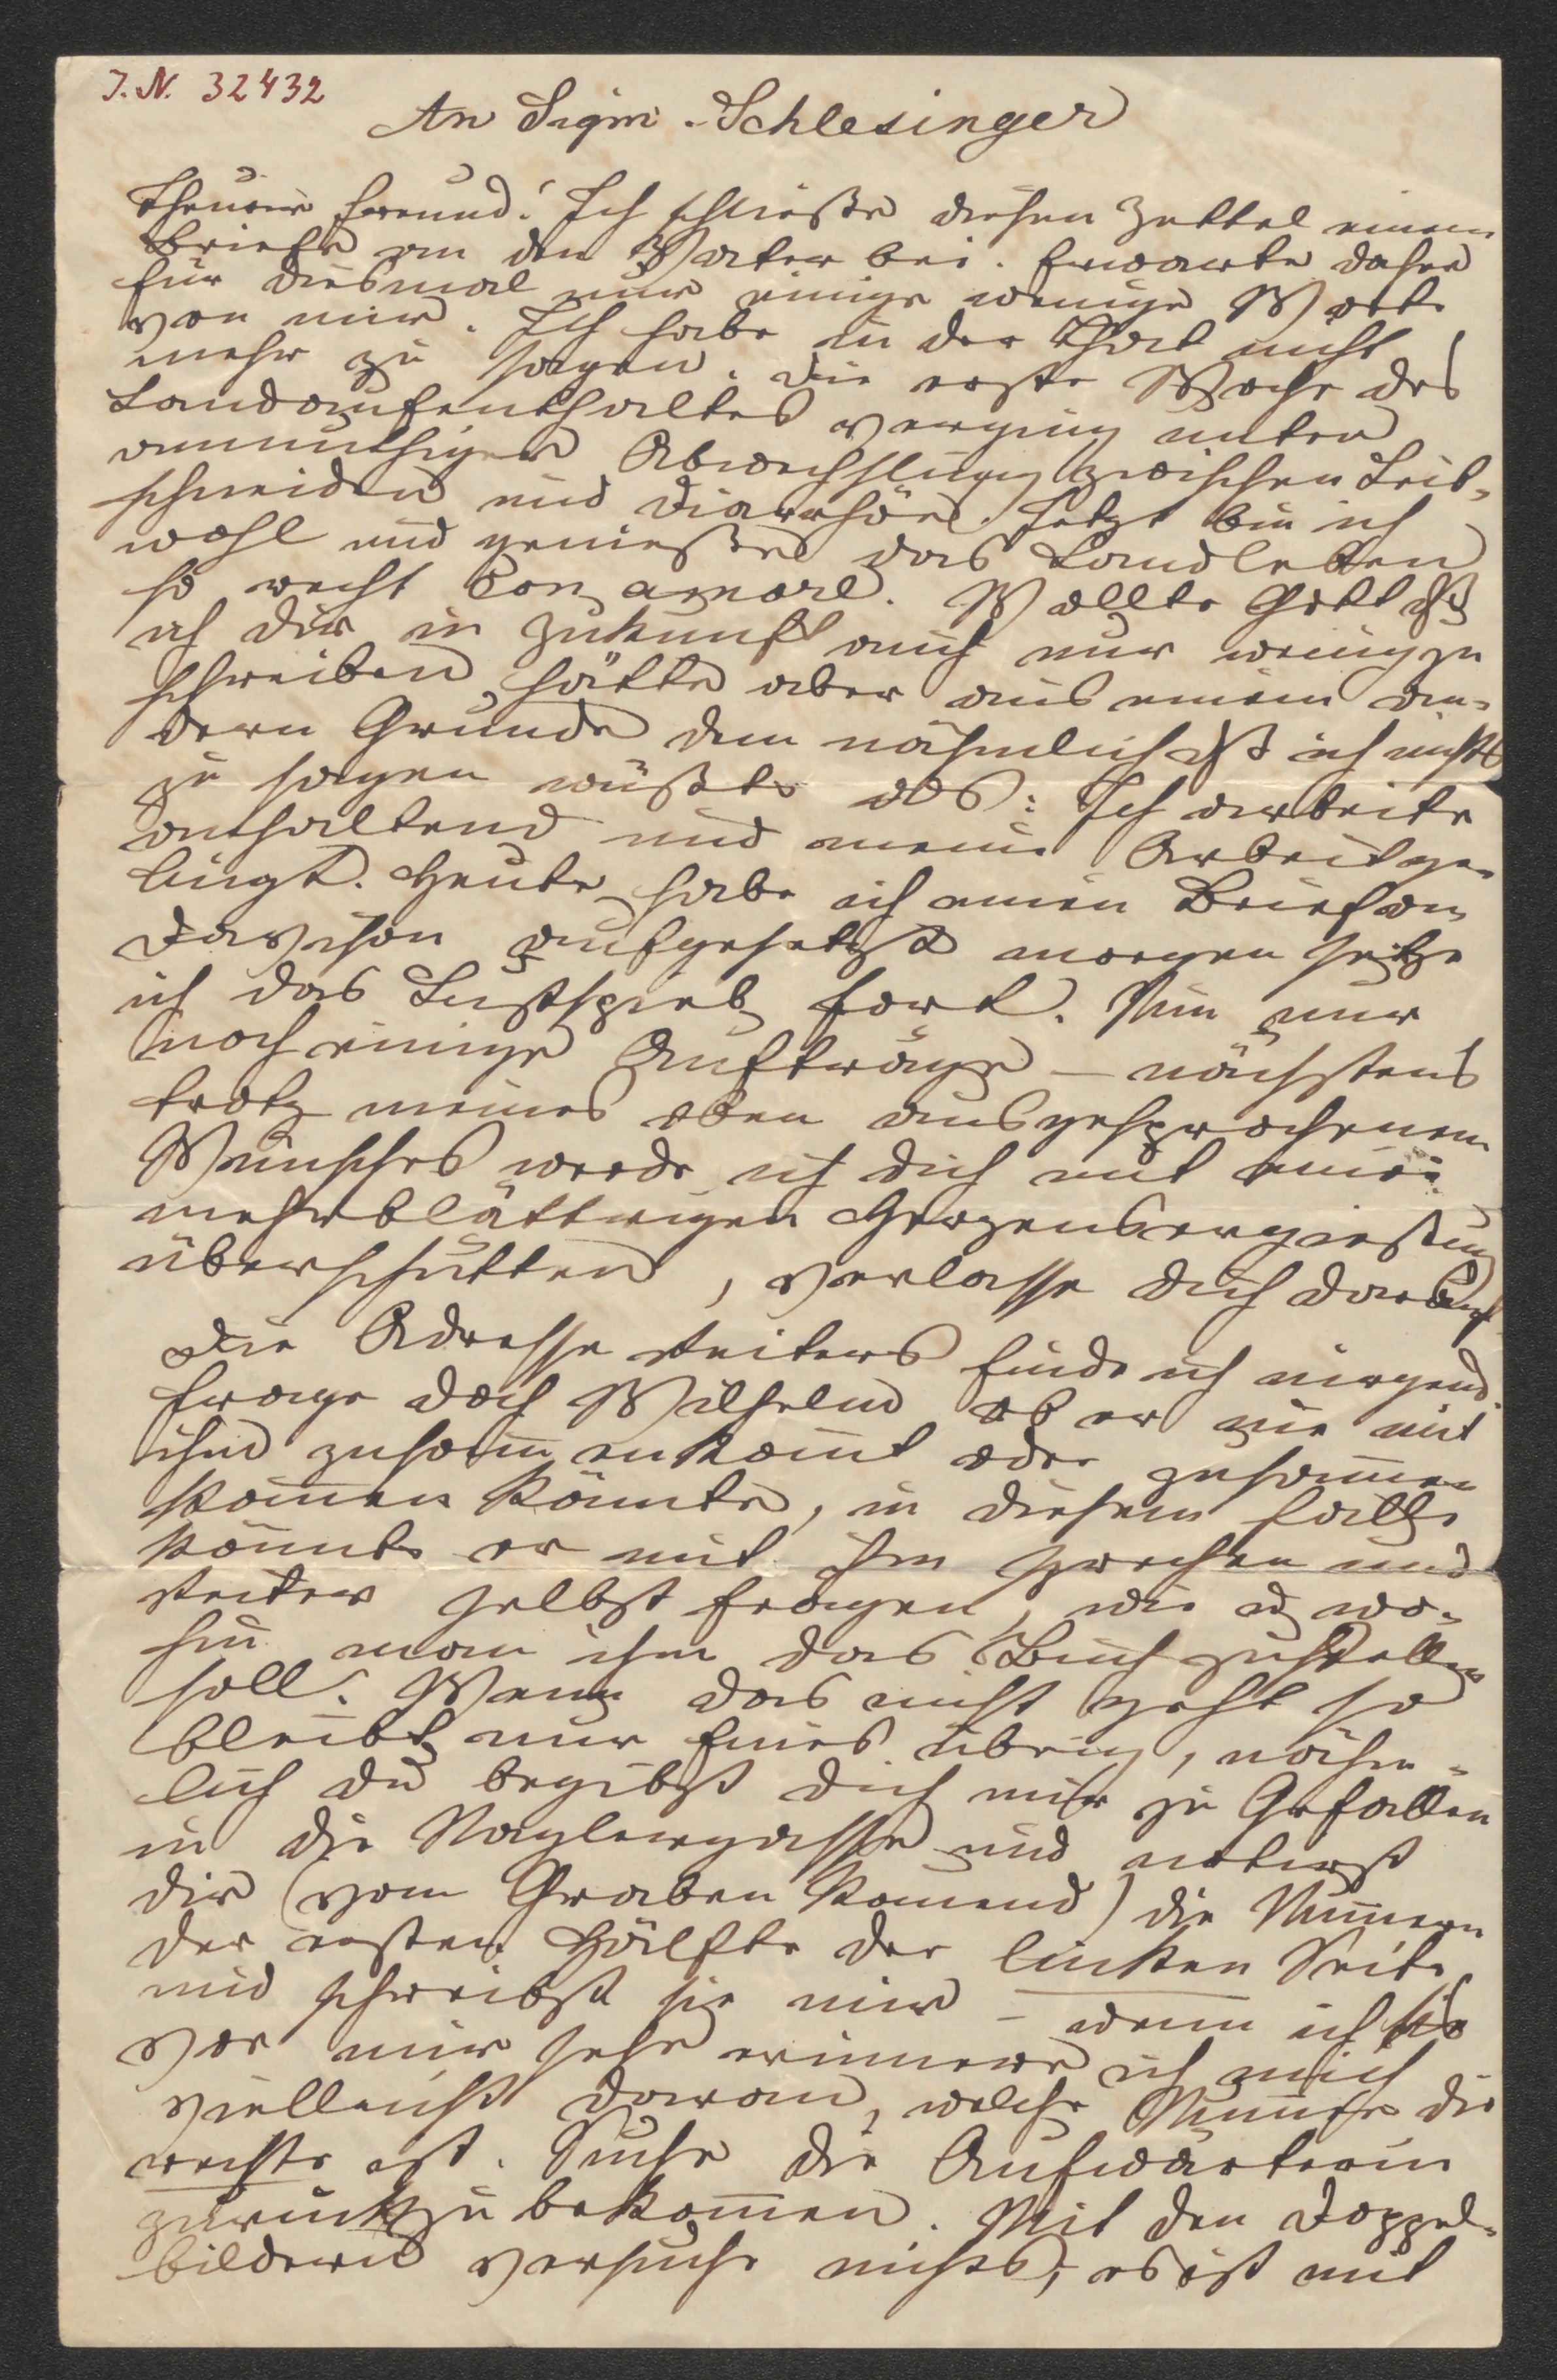 J. N. 32432
An Sigm. Schlesinger
Theurer Freund! Ich schließe diesen Zettel einem
Briefe an den Vater bei. Erwarte daher
für diesmal nur einige wenige Worte
von mir. Ich habe in der That nicht
mehr zu sagen. Die erste Woche des
Landaufenthaltes verging unter
anmuthiger Abwechslung zwischen Leib-
schneiden und Diarrhöe. Jetzt bin ich
wohl und genieße das Landleben
so recht con amore. Wollte Gott dß
ich dir in Zukunft auch nur wenig zu
schreiben hätte aber aus einem an-
dern Grunde dem nähmlich dß ich nichts
zu sagen wüßte als: Ich arbeite
anhaltend und meine Arbeit ge-
lingt. Heute habe ich einen Brief an
Dawison aufgesetzt morgen setze
ich das Lustspiel fort. Nun nur
noch einige Aufträge – nächstens
trotz meines oben ausgesprochenen
Wunsches werde ich dich mit einer
mehrblättrigen Herzensergießung
überschütten, verlasse dich darauf
Die Adresse Reiters finde ich nirgend.
Frage doch Wilhelm ob er nie mit
ihm zusam̅enkom̅t oder zusam̅en
kom̅en könnte, in diesem Falle
könnte er mit ihm sprechen und
Reiter selbst fragen, wie u wo-
hin man ihm das Buch zustellen
soll. Wenn das nicht geht so
bleibt nur Eines übrig, nähm-
lich du begibst dich mir zu Gefallen
in die Naglergasse und notirst
dir (vom Graben kom̅end) die Num̅ern
der ersten Hälfte der linken Seite
und schreibst sie mir – wenn ich sie
vor mir sehe erinnere ich mich
vielleicht daran, welche Num̅er die
rechte ist. Suche die Aufwärterin
zurückzubekom̅en. Mit den Doppel-
bildern versuche nichts, es ist mit